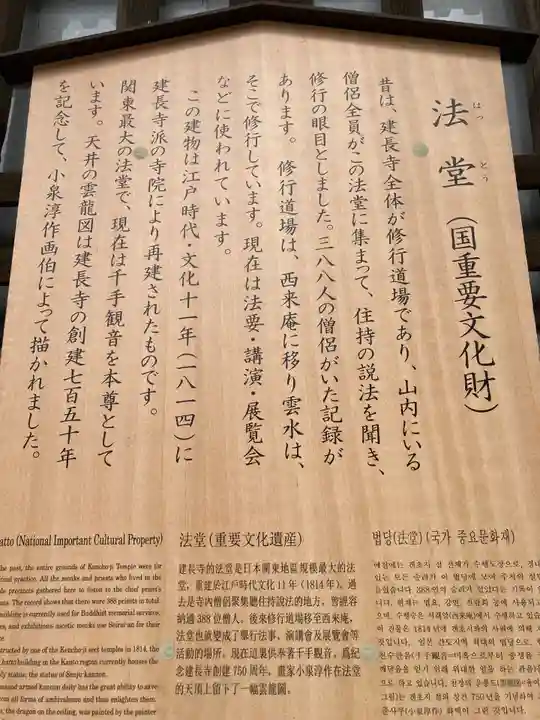 法堂（国重要文化財）
はっ とう
昔は、建長寺全体が修行道場であり、山内にいる
僧侶全員がこの法堂に集まって、住持の説法を聞き、
修行の眼目としました。三八八人の僧侶がいた記録が
あります。 修行道場は、西来庵に移り雲水は、
そこで修行しています。現在は法要・講演・展覧会
などに使われています。
この建物は江戸時代・文化十一年（一八一四）に
建長寺派の寺院により再建されたものです。
関東最大の法堂で、現在は千手観音を本尊として
います。天井の雲龍図は建長寺の創建七百五十年
を記念して、小泉淳作画伯によって描かれました。
atto (National Important Cultural Property)
the past, the entire grounds of Kencho-ji Temple were for
practice. All the monks and priests who lived in the
precincts gathered here to listen to the chief priest's
The record shows that there were 388 priests in total.
building is currently used for Buddhist memorial services,
and exhibitions
by the Kencho-ji sect temples in 1814, the
hatto building in the Kanto region currently houses the
the statue of Senju kannon.
armed Kannon deity has the great ability to save
all forms of ambivalence and thus enlighten them.
the dragon on the ceiling, was painted by the painter
法堂(重要文化遺産)
建長寺的法堂是日本關東地區規模最大的法
堂，重建於江戶時代文化11年(1814年)。過
去是寺內僧侶聚集聽住持說法的地方，曾經容
納過388位僧人，後來修行道場移至西来庵，
法堂也就變成了舉行法事、演講會及展覽會等
活動的場所。現在這裏供奉著千手觀音。爲紀
念建長寺創建750周年，畫家小泉淳作在法堂
的天頂上留下了一幅雲龍圖。
법당(法堂)(국가 중요문화재)
예전에는 겐초지 절 전체가 수행도장으로, 경내
있는 모든 승려가 이 법당에 모여 주지의 설법
들었습니다. 388명의 승려가 있었다는 기록이
니다. 현재는 법요, 강연, 전람회 등에 사용되고
며, 수행승은 서래암(西来庵)에서 수행하고 있습
이 건물은 1814년에 겐초지파의 사원에 의해
것입니다.